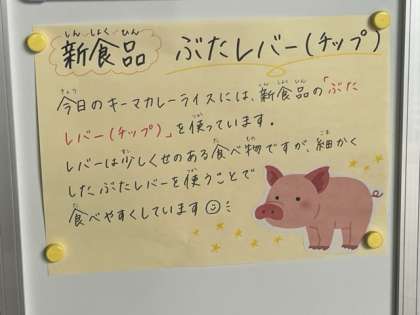 新食品 ぶたレバー(チップ)
今日のキーマカレーライスには、新食品の「ぶた
レバー(チップ)」を使っています。
レバーは少しくせのある食べ物ですが、細かく
したぶたレバーを使うことで
食べやすくしています